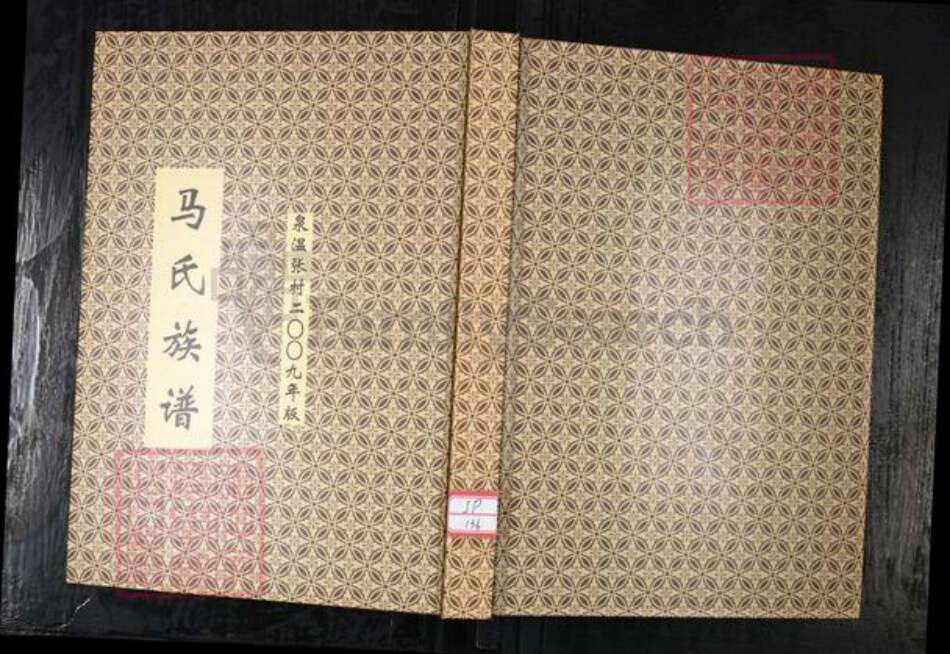 马氏族谱
泉温张村二〇〇九年版
JP
136